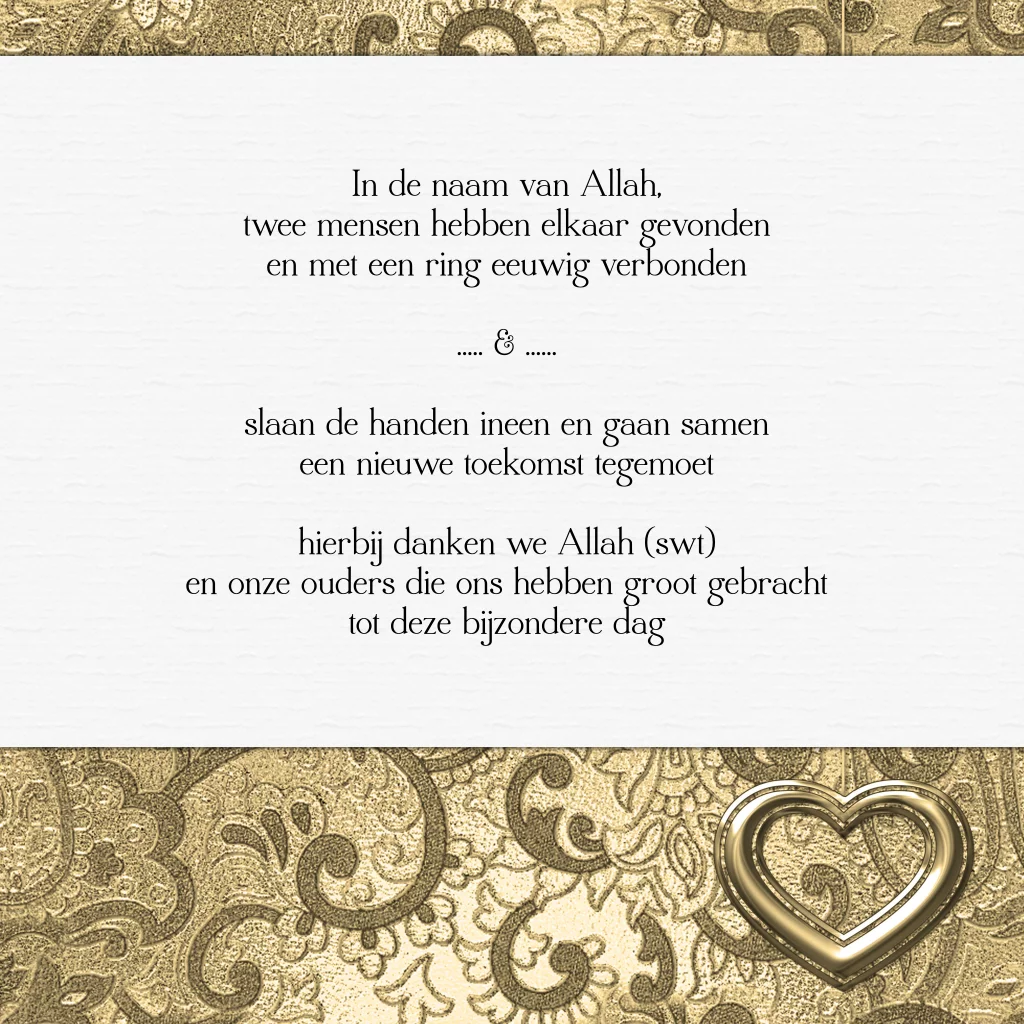 In de naam van Allah,
twee mensen hebben elkaar gevonden
en met een ring eeuwig verbonden
..... & ......
slaan de handen ineen en gaan samen
een nieuwe toekomst tegemoet
hierbij danken we Allah (swt)
en onze ouders die ons hebben groot gebracht
tot deze bijzondere dag